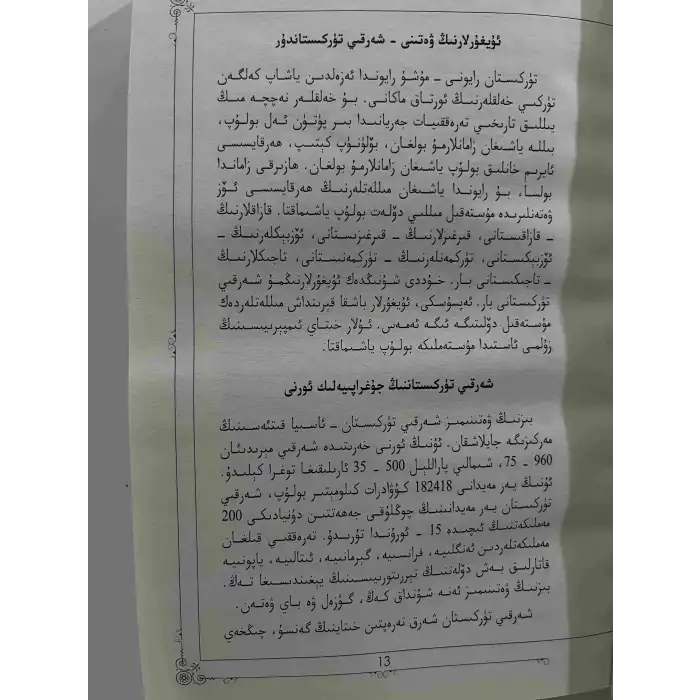 ئۇيغۇرلارنىڭ ۋەتىنى - شەرقىي تۈركىستاندۇر
تۈركىستان رايونى ـ مۇشۇ رايوندا ئەزەلدىن ياشاپ كەلگەن
تۈركىي خەلقلەرنىڭ ئورتاق ماكانى. بۇ خەلقلەر نەچچە مىڭ
يىللىق تارىخىي تەرەققىيات جەريانىدا بىر پۈتۈن ئەل بولۇپ،
بىللە ياشىغان زامانلارمۇ بولغان، بۆلۈنۈپ كېتىپ، ھەرقايسىسى
ئايرىم خانلىق بولۇپ ياشىغان زامانلارمۇ بولغان. ھازىرقى زاماندا
بولسا، بۇ رايوندا ياشىغان مىللەتلەرنىڭ ھەرقايسىسى ئۆز
ۋەتەنلىرىدە مۇستەقىل مىللىي دۆلەت بولۇپ ياشىماقتا. قازاقلارنىڭ
ـ قازاقىستانى، قىرغىزلارنىڭ ـ قىرغىزىستانى، ئۆزبېكلەرنىڭ ـ
ئۆزبېكىستانى، تۈركمەنلەرنىڭ ـ تۈركمەنىستانى، تاجىكلارنىڭ
ـ تاجىكىستانى بار. خۇددى شۇنىڭدەك ئۇيغۇرلارنىڭمۇ شەرقىي
تۈركىستانى بار. ئەپسۇسكى، ئۇيغۇرلار باشقا قېرىنداش مىللەتلەردەك
مۇستەقىل دۆلىتىگە ئىگە ئەمەس. ئۇلار خىتاي ئىمپېرىيىسىنىڭ
زۇلمى ئاستىدا مۇستەملىكە بولۇپ ياشىماقتا.
شەرقىي تۈركىستاننىڭ جۇغراپىيەلىك ئورنى
بىزنىڭ ۋەتىنىمىز شەرقىي تۈركىستان ـ ئاسىيا قىتئەسىنىڭ
مەركىزىگە جايلاشقان. ئۇنىڭ ئورنى خەرىتىدە شەرقىي مېرىدىئان
960 ـ 75، شىمالىي پاراللېل 500 ـ 35 ئارىلىقىغا توغرا كېلىدۇ.
ئۇنىڭ يەر مەيدانى 182418 كۇۋادرات كىلومېتىر بولۇپ، شەرقىي
تۈركىستان يەر مەيدانىنىڭ چوڭلۇقى جەھەتتىن دۇنيادىكى 200
مەملىكەتنىڭ ئىچىدە 15 ـ ئورۇندا تۇرىدۇ. تەرەققىي قىلغان
مەملىكەتلەردىن ئەنگلىيە، فرانسىيە، گېرمانىيە، ئىتالىيە، ياپونىيە
قاتارلىق بەش دۆلەتنىڭ تېررىتورىيىسىنىڭ يىغىندىسىغا تەڭ.
بىزنىڭ ۋەتىنىمىز ئەنە شۇنداق كەڭ، گۈزەل ۋە باي ۋەتەن.
شەرقىي تۈركىستان شەرق تەرەپتىن خىتاينىڭ گەنسۇ، چىڭخەي
13